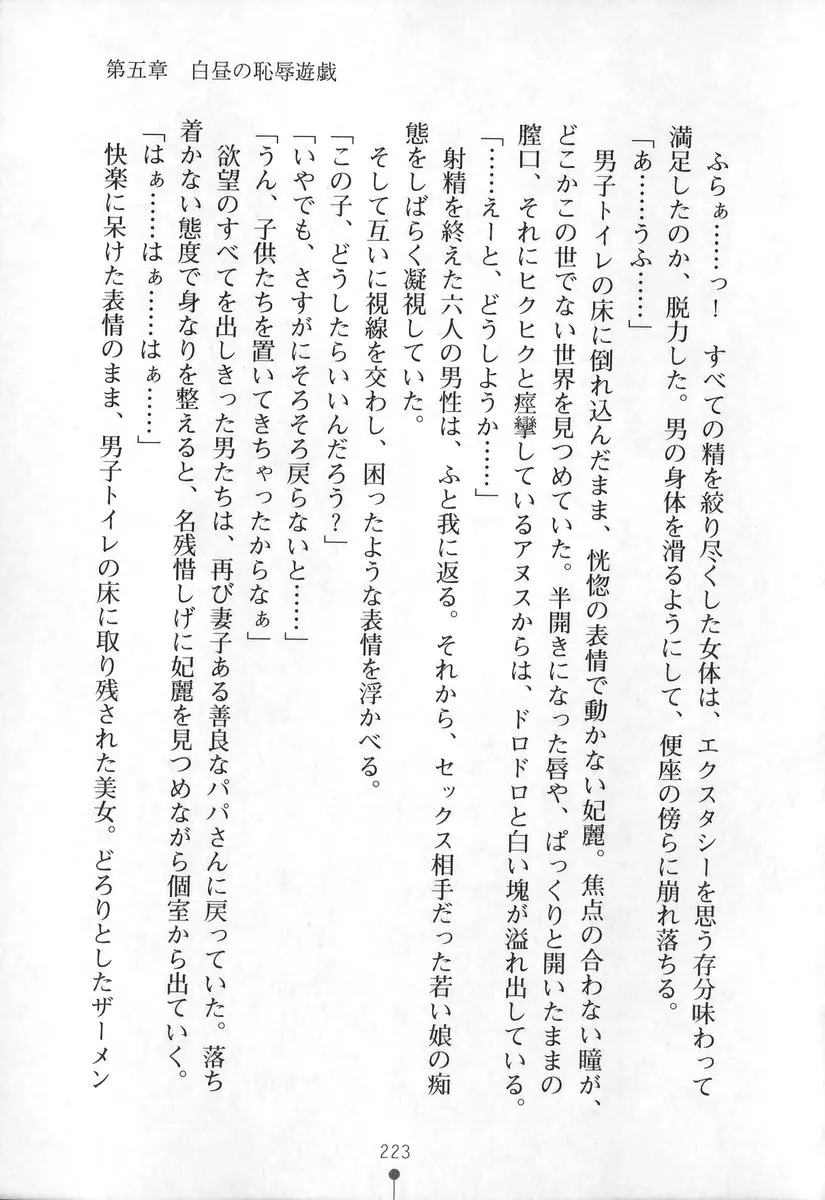 第五章　白昼の恥辱遊戯
ふらぁ……っ！　すべての精を絞り尽くした女体は、エクスタシーを思う存分味わって
満足したのか、脱力した。男の身体を滑るようにして、便座の傍らに崩れ落ちる。
「あ……うふ……」
男子トイレの床に倒れ込んだまま、恍惚の表情で動かない妃麗。焦点の合わない瞳が、
どこかこの世でない世界を見つめていた。半開きになった唇や、ぱっくりと開いたままの
膣口、それにヒクヒクと痙攣しているアヌスからは、ドロドロと白い塊が溢れ出している。
「……えーと、どうしようか……」
射精を終えた六人の男性は、ふと我に返る。それから、セックス相手だった若い娘の痴
態をしばらく凝視していた。
そして互いに視線を交わし、困ったような表情を浮かべる。
「この子、どうしたらいいんだろう？」
「いやでも、さすがにそろそろ戻らないと……」
「うん、子供たちを置いてきちゃったからなぁ」
欲望のすべてを出しきった男たちは、再び妻子ある善良なパパさんに戻っていた。落ち
着かない態度で身なりを整えると、名残惜しげに妃麗を見つめながら個室から出ていく。
「はぁ……はぁ……はぁ……」
快楽に呆けた表情のまま、男子トイレの床に取り残された美女。どろりとしたザーメン
223